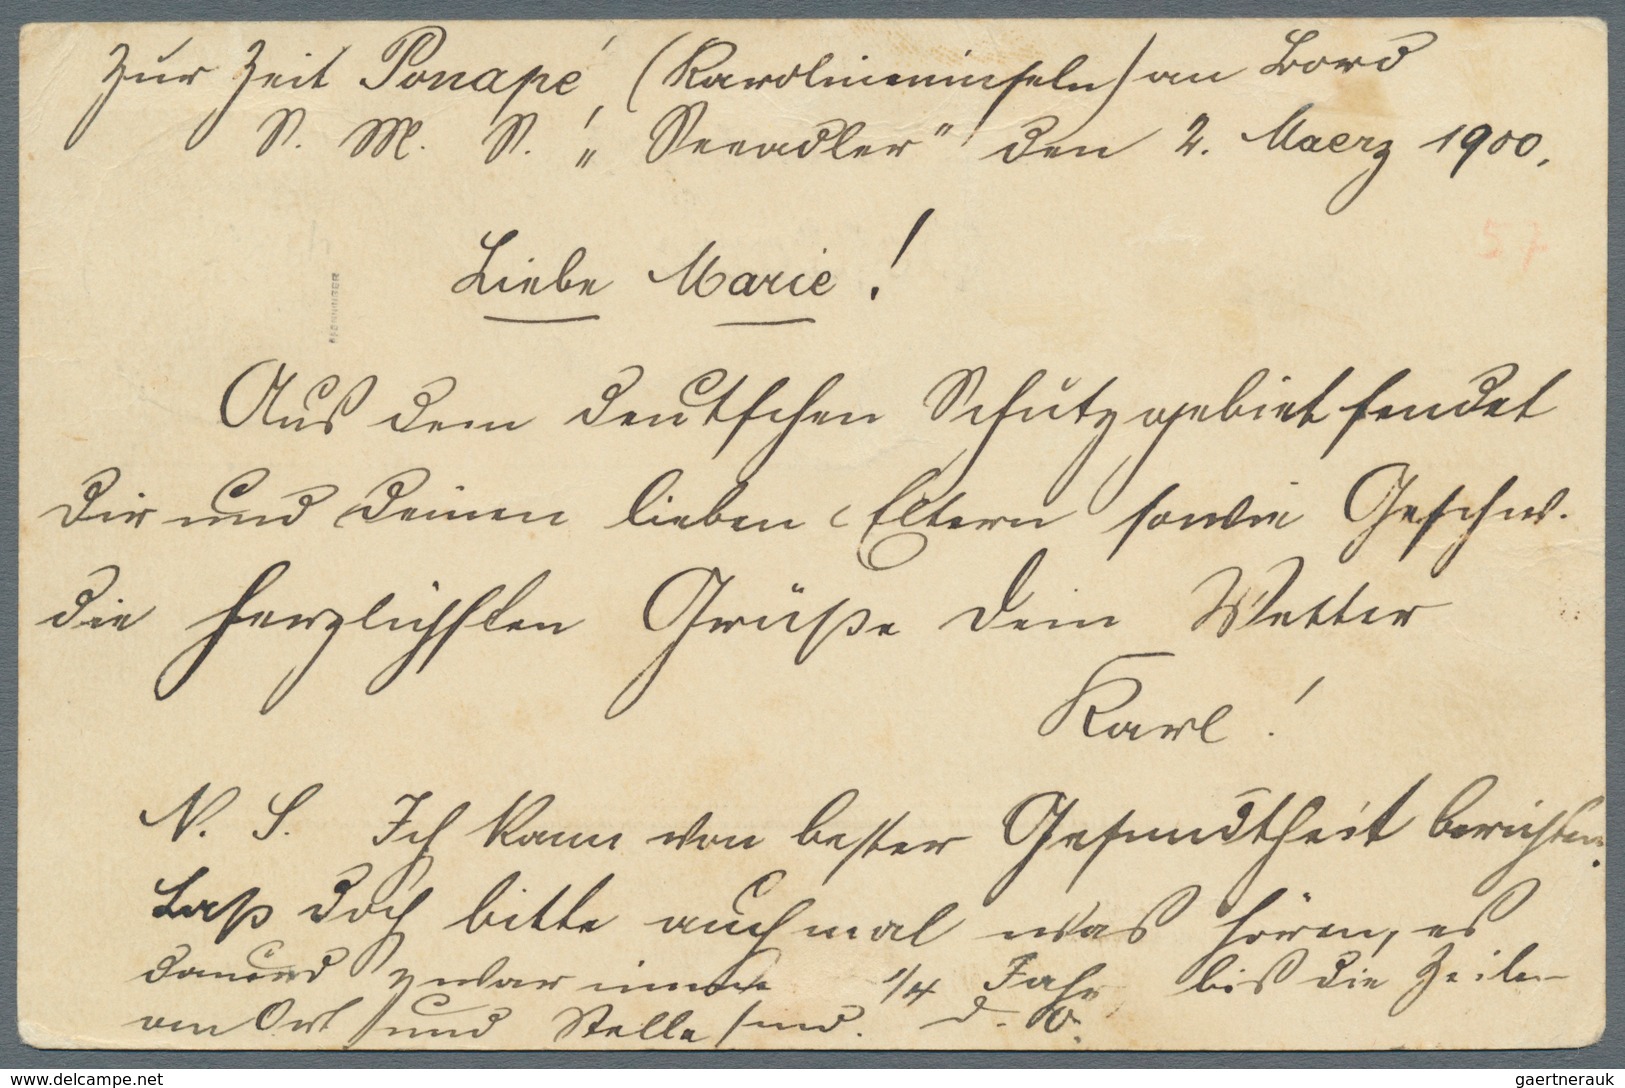 Zur Zeit Ponapé, (Karolineninseln) an Bord
S. M. S. „Seeadler" den 2. Maerz 1900.
57
Liebe Marie!
Aus dem deutschen Schutzgebiet sendet
Dir und Deinen lieben Eltern sowie Geschw.
die herzlichsten Grüße Dein Vetter
Karl!
N. S. Ich kann von bester Gesundtheit berichten.
Laß doch bitte auch mal was hören, es
dauerd zwar immer 1/4 Jahr bis die Zeilen
an Ort und Stelle sind. D. O.
www.delcampe.net
gaertnerauk